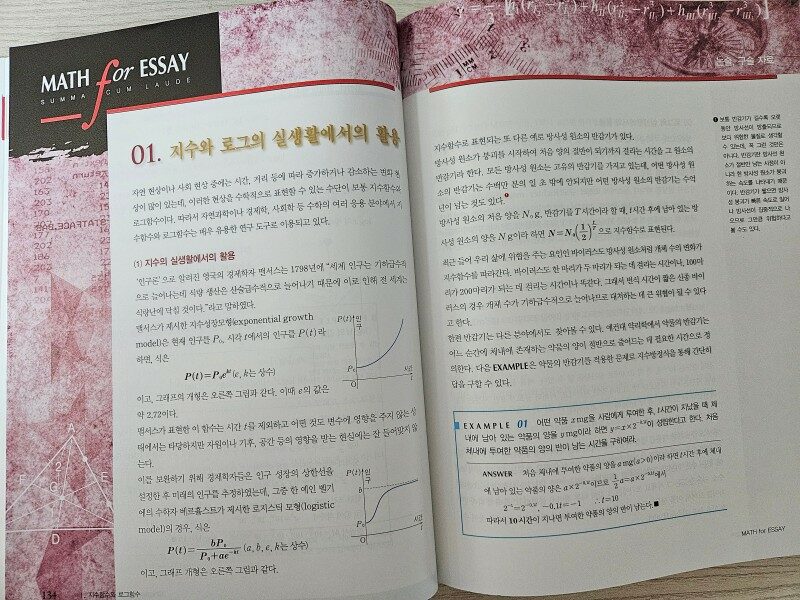 MATH for ESSAY
SUMMA CUM LAUDE
01. 지수와 로그의 실생활에서의 활용
자연 현상이나 사회 현상 중에는 시간, 거리 등에 따라 증가하거나 감소하는 변화 현
상이 많이 있는데, 이러한 현상을 수학적으로 표현할 수 있는 수단이 보통 지수함수와
로그함수이다. 따라서 자연과학이나 경제학, 사회학 등 수학의 여러 응용 분야에서 지
수함수와 로그함수는 매우 유용한 연구 도구로 이용되고 있다.
(1) 지수의 실생활에서의 활용
'인구론'으로 알려진 영국의 경제학자 맬서스는 1798년에 "세계 인구는 기하급수적
으로 늘어나는데 식량 생산은 산술급수적으로 늘어나기 때문에 이로 인해 전 세계는
식량난에 닥칠 것이다."라고 말하였다.
맬서스가 제시한 지수성장모형(exponential growth
model)은 현재 인구를 P₀, 시각 t에서의 인구를 P(t)라
하면, 식은
P(t)=P₀eᵏᵗ (e, k는 상수)
이고, 그래프의 개형은 오른쪽 그림과 같다. 이때 e의 값은
약 2.72이다.
P(t) 인구
P₀
O
시간
t
맬서스가 표현한 이 함수는 시간 t를 제외하고 어떤 것도 변수에 영향을 주지 않는 상
태에서는 타당하지만 자원이나 기후, 공간 등의 영향을 받는 현실에는 잘 들어맞지 않
는다.
이를 보완하기 위해 경제학자들은 인구 성장의 상한선을
설정한 후 미래의 인구를 추정하였는데, 그중 한 예인 벨기
에의 수학자 베르휼스트가 제시한 로지스틱 모형(logistic
model)의 경우, 식은
P(t)=bP₀/(P₀+ae⁻ᵏᵗ) (a, b, e, k는 상수)
이고, 그래프 개형은 오른쪽 그림과 같다.
P(t) 인구
b
P₀
O
시간
t
134
지수함수와 로그함수
논술, 구술 자료
지수함수로 표현되는 또 다른 예로 방사성 원소의 반감기가 있다.
방사성 원소가 붕괴를 시작하여 처음 양의 절반이 되기까지 걸리는 시간을 그 원소의
반감기라 한다. 모든 방사성 원소는 고유의 반감기를 가지고 있는데, 어떤 방사성 원
소의 반감기는 수백만 분의 일 초 밖에 안되지만 어떤 방사성 원소의 반감기는 수억
년이 넘는 것도 있다.❶
방사성 원소의 처음 양을 N₀ g, 반감기를 T시간이라 할 때, t시간 후에 남아 있는 방
사성 원소의 양을 N g이라 하면 N=N₀(1/2)^(t/T) 으로 지수함수로 표현된다.
최근 들어 우리 삶에 위협을 주는 요인인 바이러스도 방사성 원소처럼 개체 수의 변화가
지수함수를 따라간다. 바이러스도 한 마리가 두 마리가 되는 데 걸리는 시간이나, 100마
리가 200마리가 되는 데 걸리는 시간이나 똑같다. 그래서 번식 시간이 짧은 신종 바이
러스의 경우 개체 수가 기하급수적으로 늘어나므로 대처하는 데 큰 위협이 될 수 있다
고 한다.
한편 반감기는 다른 분야에서도 찾아볼 수 있다. 예컨대 약리학에서 약물의 반감기는
어느 순간에 체내에 존재하는 약물의 양이 절반으로 줄어드는 데 필요한 시간으로 정
의한다. 다음 EXAMPLE은 약물의 반감기를 적용한 문제로 지수방정식을 통해 간단히
답을 구할 수 있다.
EXAMPLE 01 어떤 약품 x mg을 사람에게 투여한 후, t시간이 지났을 때 체
내에 남아 있는 약품의 양을 y mg이라 하면 y=x×2⁻⁰·¹ᵗ이 성립한다고 한다. 처음
체내에 투여한 약품의 양의 반이 남는 시간을 구하여라.
ANSWER 처음 체내에 투여한 약품의 양을 a mg(a>0)이라 하면 t시간 후에 체내
에 남아 있는 약품의 양은 a×2⁻⁰·¹ᵗ이므로 1/2a=a×2⁻⁰·¹ᵗ에서
2⁻¹=2⁻⁰·¹ᵗ, -0.1t=-1 ∴ t=10
따라서 10시간이 지나면 투여한 약품의 양의 반이 남는다. ■
MATH for ESSAY